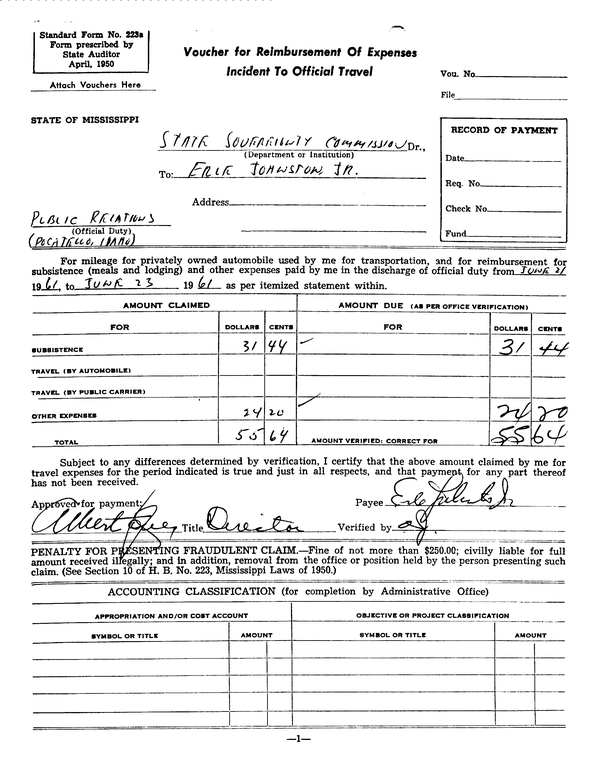 Standard Form No. 223a
Form prescribed by
State Auditor
April, 1950
Attach Vouchers Here
Voucher for Reimbursement Of Expenses
Incident To Official Travel
Vou. No.
File
STATE OF MISSISSIPPI
STATE SOVEREIGNTY COMMISSION Dr.,
(Department or Institution)
To: ERLE JOHNSTON, JR.
Address
RECORD OF PAYMENT
Date
Req. No.
Check No.
Fund
PUBLIC RELATIONS
(Official Duty)
(POCATELLO, IDAHO)
For mileage for privately owned automobile used by me for transportation, and for reimbursement for
subsistence (meals and lodging) and other expenses paid by me in the discharge of official duty from JUNE 21
1961, to JUNE 23 1961 as per itemized statement within.
AMOUNT CLAIMED AMOUNT DUE (AS PER OFFICE VERIFICATION)
FOR DOLLARS CENTS FOR DOLLARS CENTS
SUBSISTENCE 31 44 31 44
TRAVEL (BY AUTOMOBILE)
TRAVEL (BY PUBLIC CARRIER)
OTHER EXPENSES 24 20 24 20
TOTAL 55 64 AMOUNT VERIFIED: CORRECT FOR 55 64
Subject to any differences determined by verification, I certify that the above amount claimed by me for
travel expenses for the period indicated is true and just in all respects, and that payment, for any part thereof
has not been received.
Approved for payment: Payee Erle Johnston Jr
Albert Jones Title Director Verified by
PENALTY FOR PRESENTING FRAUDULENT CLAIM.—Fine of not more than $250.00; civilly liable for full
amount received illegally; and in addition, removal from the office or position held by the person presenting such
claim. (See Section 10 of H. B. No. 223, Mississippi Laws of 1950.)
ACCOUNTING CLASSIFICATION (for completion by Administrative Office)
APPROPRIATION AND/OR COST ACCOUNT OBJECTIVE OR PROJECT CLASSIFICATION
SYMBOL OR TITLE AMOUNT SYMBOL OR TITLE AMOUNT
—1—